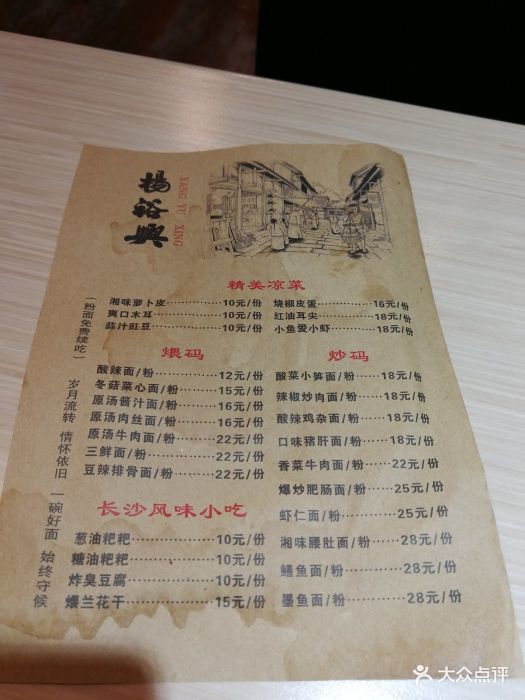 楊裕興
YANG YU XING
精美凉菜
湘味萝卜皮 10元/份
爽口木耳 10元/份
蒜汁豇豆 10元/份
烧椒皮蛋 16元/份
红油耳尖 18元/份
小鱼爱小虾 18元/份
煨码
酸辣面/粉 12元/份
冬菇菜心面/粉 15元/份
原汤酱汁面/粉 16元/份
原汤肉丝面/粉 16元/份
原汤牛肉面/粉 22元/份
三鲜面/粉 22元/份
豆辣排骨面/粉 22元/份
炒码
酸菜小笋面/粉 18元/份
辣椒炒肉面/粉 18元/份
酸辣鸡杂面/粉 18元/份
口味猪肝面/粉 18元/份
香菜牛肉面/粉 22元/份
爆炒肥肠面/粉 25元/份
虾仁面/粉 25元/份
湘味腰肚面/粉 28元/份
鳝鱼面/粉 28元/份
墨鱼面/粉 28元/份
长沙风味小吃
葱油粑粑 10元/份
糖油粑粑 10元/份
炸臭豆腐 10元/份
煨兰花干 15元/份
（粉面免费续吃）
岁月流转 情怀依旧 一碗好面 始终守候
大众点评